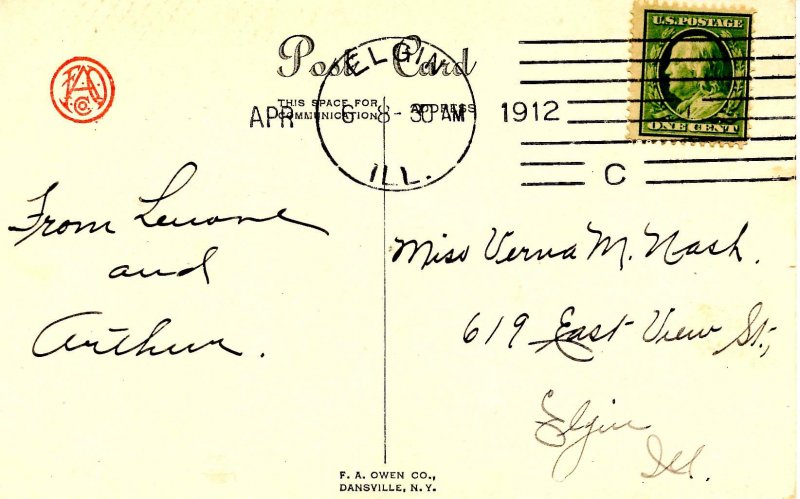 Post Card
ELGIN
ILL.
APR 6 8-30 AM 1912
C
U.S. POSTAGE
ONE CENT
FAO
Co
THIS SPACE FOR
COMMUNICATION
ADDRESS
From
and
Arthur.
Miss Verna M. Nash.
619 East View St,
Elgin
Ill.
F. A. OWEN CO.,
DANSVILLE, N.Y.